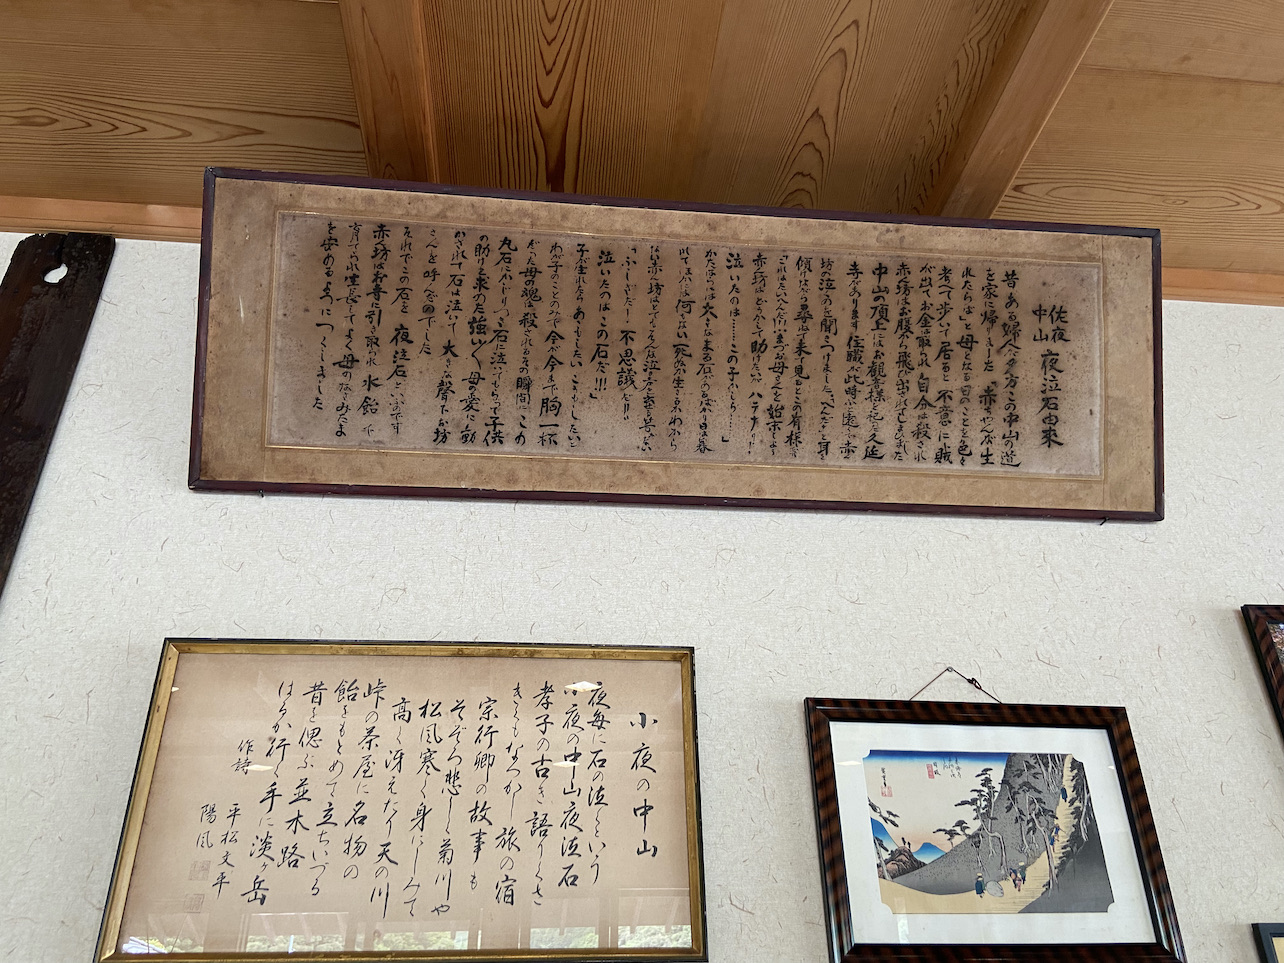 佐夜
中山 夜泣石由来
昔ある婦人が夕方この中山の道
を家に帰りました「赤ちゃんが生
れたらば」と母となる日のことを色々
考へて歩いて居ると不意に賊
が出てお金は取られ自分は殺され
赤ん坊はお腹から飛び出されてしまひました
中山の頂上にはお観音様を祀る久延
寺があります住職が此時に遠くで赤ん
坊の泣くのを聞きつけました
傾けながら尋ねて来て見るとこの有様
これはたいへんだ!!まづお母さんを始末しよう
赤ん坊はどうかして助けたいがハテナ!!
泣いたのは……この子かしら……」
かたはらには大きな丸る石があるばかり
他には何にもない死ぬか生きるかわから
ない赤ん坊はとてもそんな泣き声を
「ふしぎだ!!不思議だ!!
泣いたのはこの石だ!!!
子が生れたらあゝもしたいこうもしたいと
わが子のことのみで今が今まで胸一杯
だった母の魂は殺されるその瞬間にこの
丸石にかじりつき石に泣いてもらって子供
の助けを求めた強い〱母の愛に動
かされて石は泣いて大きな聲でお坊
さんを呼んだのでした
それでこの石を 夜泣石といふのです
赤ん坊はお寺に引き取られ水飴で
育てられ生長してよく母のなきみたまよ
を安めるようにつくしました
小夜の中山
夜毎に石の泣くという
小夜の中山夜泣石
孝子の古き語りぐさ
きくもなつかし旅の宿
宗行卿の故事も
そぞろ悲しく菊川や
松風寒く身にしみて
高く冴えたり天の川
峠の茶屋に名物の
飴をもとめて立ちいづる
昔を偲ぶ並木路
はるか行く手に淡ヶ岳
作詩 平松文平
陽風